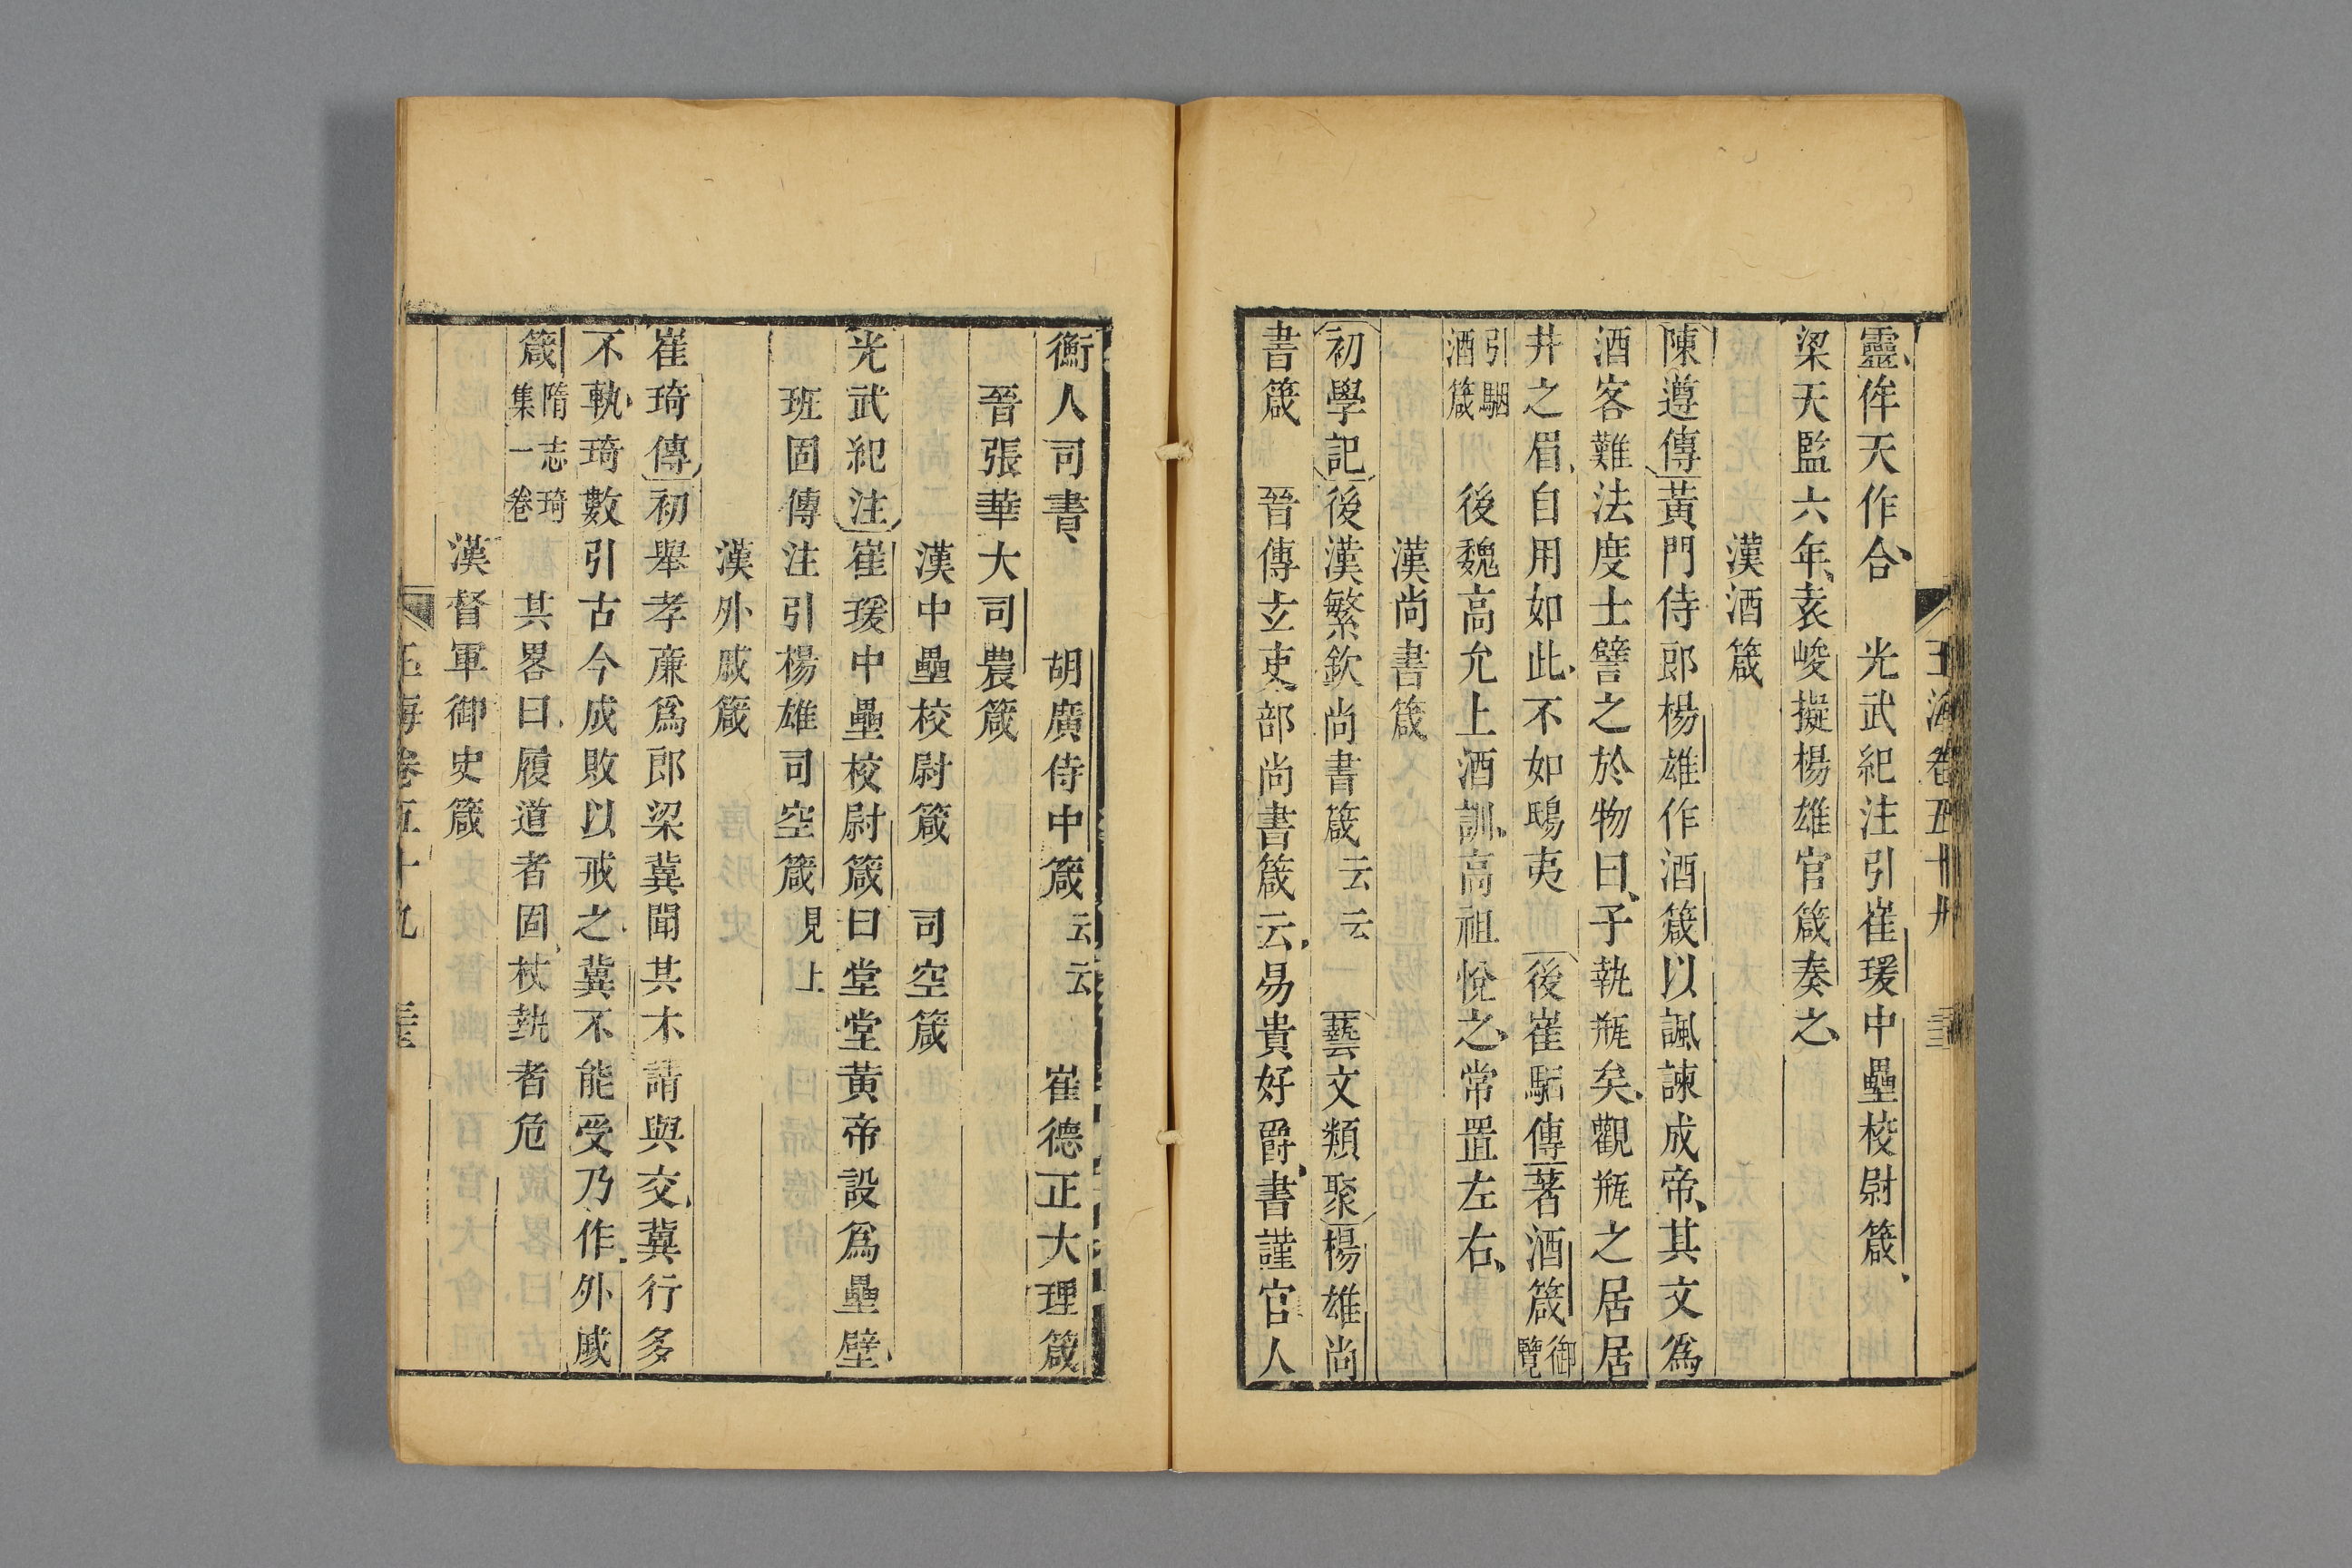 靈侔天作合　光武紀注引崔瑗中壘校尉箴
梁天監六年袁峻擬楊雄官箴奏之
漢酒箴
陳遵傳黃門侍郎楊雄作酒箴以諷諫成帝其文爲
酒客難法度士譬之於物曰子執瓶矣觀瓶之居居
井之眉自用如此不如鴟夷　後崔駰傳著酒箴御覽
引駰酒箴　後魏高允上酒訓高祖悅之常置左右
漢尚書箴
初學記後漢繁欽尚書箴云云　藝文類聚楊雄尚
書箴　晉傅玄吏部尚書箴云易貴好爵書謹官人
衡人司書　胡廣侍中箴云云　崔德正大理箴
晉張華大司農箴
漢中壘校尉箴　司空箴
光武紀注崔瑗中壘校尉箴曰堂堂黃帝設爲壘壁
班固傳注引楊雄司空箴見上
漢外戚箴
崔琦傳初舉孝廉爲郎梁冀聞其才請與交冀行多
不軌琦數引古今成敗以戒之冀不能受乃作外戚
箴隋志琦集一卷　其畧曰履道者固杖執者危
漢督軍御史箴
玉海卷五十九